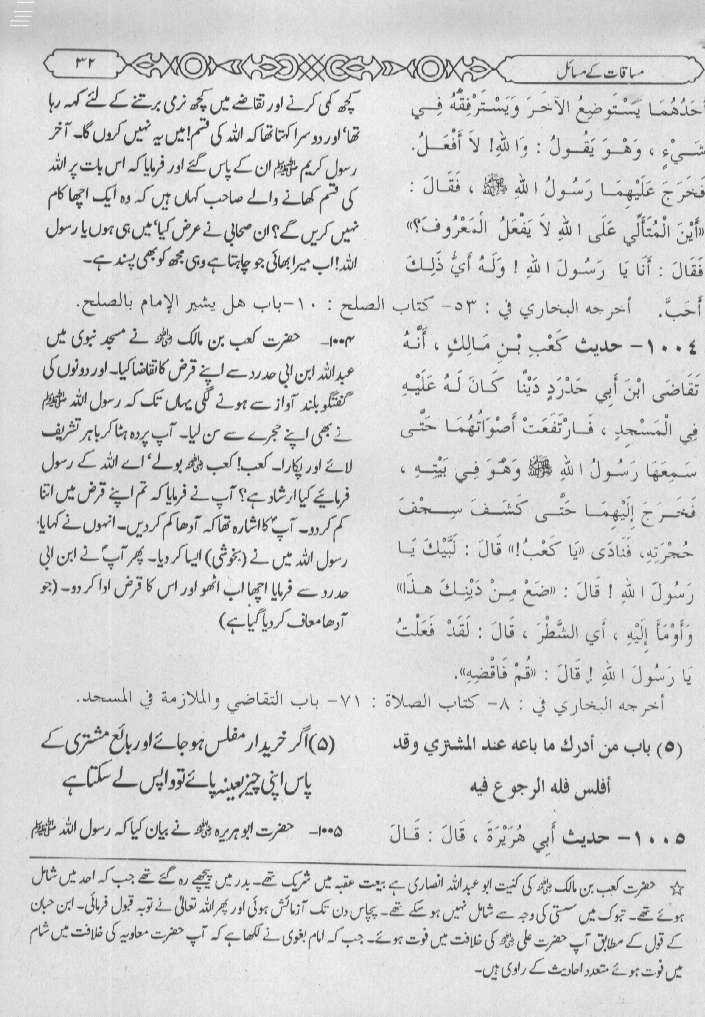 مساقات کے مسائل
۳۲
أحَدُهُمَا يَسْتَوضِعُ الآخَرَ وَيَسْتَرْفِقُهُ فِي
شَيْءٍ ، وَهْوَ يَقُولُ : وَاللهِ! لاَ أَفْعَلُ.
فَخَرَجَ عَلَيْهِمَا رَسُولُ اللهِ ﷺ ، فَقَالَ :
«أَيْنَ الْمُتَأَلِّي عَلَى اللهِ لاَ يَفْعَلُ الْمَعْرُوفَ؟»
فَقَالَ : أَنَا يَا رَسُولَ اللهِ ! وَلَهُ أَيُّ ذَلِكَ
أَحَبَّ. أخرجه البخاري في : ٥٣- كتاب الصلح : ١٠-باب هل يشير الإمام بالصلح.
کچھ کمی کرنے اور تقاضے میں کچھ نرمی برتنے کے لئے کہہ رہا
تھا' اور دوسرا کہتا تھا کہ اللہ کی قسم! میں یہ نہیں کروں گا۔ آخر
رسول کریم ﷺ ان کے پاس گئے اور فرمایا کہ اس بات پر اللہ
کی قسم کھانے والے صاحب کہاں ہیں کہ وہ ایک اچھا کام
نہیں کریں گے؟ ان صحابی نے عرض کیا' میں ہی ہوں یا رسول
اللہ! اب میرا بھائی جو چاہتا ہے وہی مجھ کو بھی پسند ہے۔
١٠٠٤- حديث كَعْبِ بْنِ مَالِكٍ ، أَنَّهُ
تَقَاضَى ابْنَ أَبِي حَدْرَدٍ دَيْنًا كَانَ لَهُ عَلَيْهِ
فِي الْمَسْجِدِ ، فَارْتَفَعَتْ أَصْوَاتُهُمَا حَتَّى
سَمِعَهَا رَسُولُ اللهِ ﷺ وَهُوَ فِي بَيْتِهِ ،
فَخَرَجَ إِلَيْهِمَا حَتَّى كَشَفَ سِجْفَ
حُجْرَتِهِ، فَنَادَى «يَا كَعْبُ!» قَالَ : لَبَّيْكَ يَا
رَسُولَ اللهِ ! قَالَ : «ضَعْ مِنْ دَيْنِكَ هذَا»
وَأَوْمَأَ إِلَيْهِ ، أَيِ الشَّطْرَ ، قَالَ : لَقَدْ فَعَلْتُ
يَا رَسُولَ اللهِ ! قَالَ : «قُمْ فَاقْضِهِ».
۱۰۰۴- حضرت کعب بن مالک ؓ نے مسجد نبوی میں
عبداللہ ابن ابی حدرد سے اپنے قرض کا تقاضا کیا۔ اور دونوں کی
گفتگو بلند آواز سے ہونے لگی یہاں تک کہ رسول اللہ ﷺ
نے بھی اپنے حجرے سے سن لیا۔ آپ پردہ ہٹا کر باہر تشریف
لائے اور پکارا۔ کعب! کعب ؓ بولے' اے اللہ کے رسول
فرمائیے کیا ارشاد ہے؟ آپ نے فرمایا کہ تم اپنے قرض میں اتنا
کم کر دو۔ آپؐ کا اشارہ تھا کہ آدھا کم کر دیں۔ انہوں نے کہا یا
رسول اللہ میں نے (بخوشی) ایسا کر دیا۔ پھر آپؐ نے ابن ابی
حدرد سے فرمایا اچھا اب اٹھو اور اس کا قرض ادا کر دو۔ (جو
آدھا معاف کر دیا گیا ہے)
أخرجه البخاري في : ٨- كتاب الصلاة : ٧١- باب التقاضي والملازمة في المسجد.
(٥) باب من أدرك ما باعه عند المشتري وقد
أفلس فله الرجوع فيه
(۵) اگر خریدار مفلس ہو جائے اور بائع مشتری کے
پاس اپنی چیز بعینہ پائے تو واپس لے سکتا ہے
١٠٠٥- حديث أَبِي هُرَيْرَةَ ، قَالَ : قَالَ
۱۰۰۵- حضرت ابو ہریرہ ؓ نے بیان کیا کہ رسول اللہ ﷺ
☆ حضرت کعب بن مالک ؓ کی کنیت ابو عبداللہ انصاری ہے بیعت عقبہ میں شریک تھے۔ بدر میں پیچھے رہ گئے تھے جب کہ احد میں شامل
ہوئے تھے۔ تبوک میں سستی کی وجہ سے شامل نہیں ہو سکے تھے۔ پچاس دن تک آزمائش ہوئی اور پھر اللہ تعالیٰ نے توبہ قبول فرمائی۔ ابن حبان
کے قول کے مطابق آپ حضرت علی ؓ کی خلافت میں فوت ہوئے۔ جب کہ امام بغوی نے لکھا ہے کہ آپ حضرت معاویہ کی خلافت میں شام
میں فوت ہوئے متعدد احادیث کے راوی ہیں۔